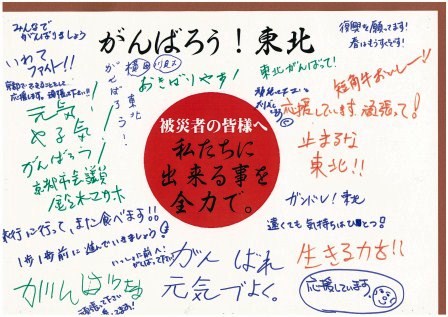 がんばろう！東北
みんなで
がんばりましょう
いわて
ファイトー!!
元気
やる気!
がんばろう!
京都市会議員
がんばろう東北!
おきばりやす!
復興を願ってます!
春はもうすぐです!
東北がんばって!
短角牛おいしーい
応援しています。頑張って!
止まるな
東北!!
被災者の皆様へ
私たちに
出来る事を
全力で。
ガンバレ! 東北
遠くても気持ちはひとつ♂
生きる力を!!
応援しています
旅行に行って、また食べます!!
1歩1歩前に進んでいきましょう!
がんばれ
元気づよく。